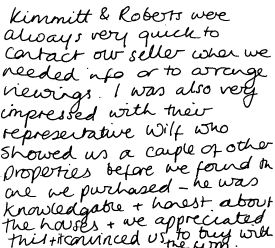 Kimmitt & Roberts were
always very quick to
contact our seller when we
needed info or to arrange
viewings. I was also very
impressed with their
representative Wilf who
showed us a couple of other
properties before we found the
one we purchased - he was
knowledgable + honest about
the houses + we appreciated
this + it convinced us to buy with
the comp.